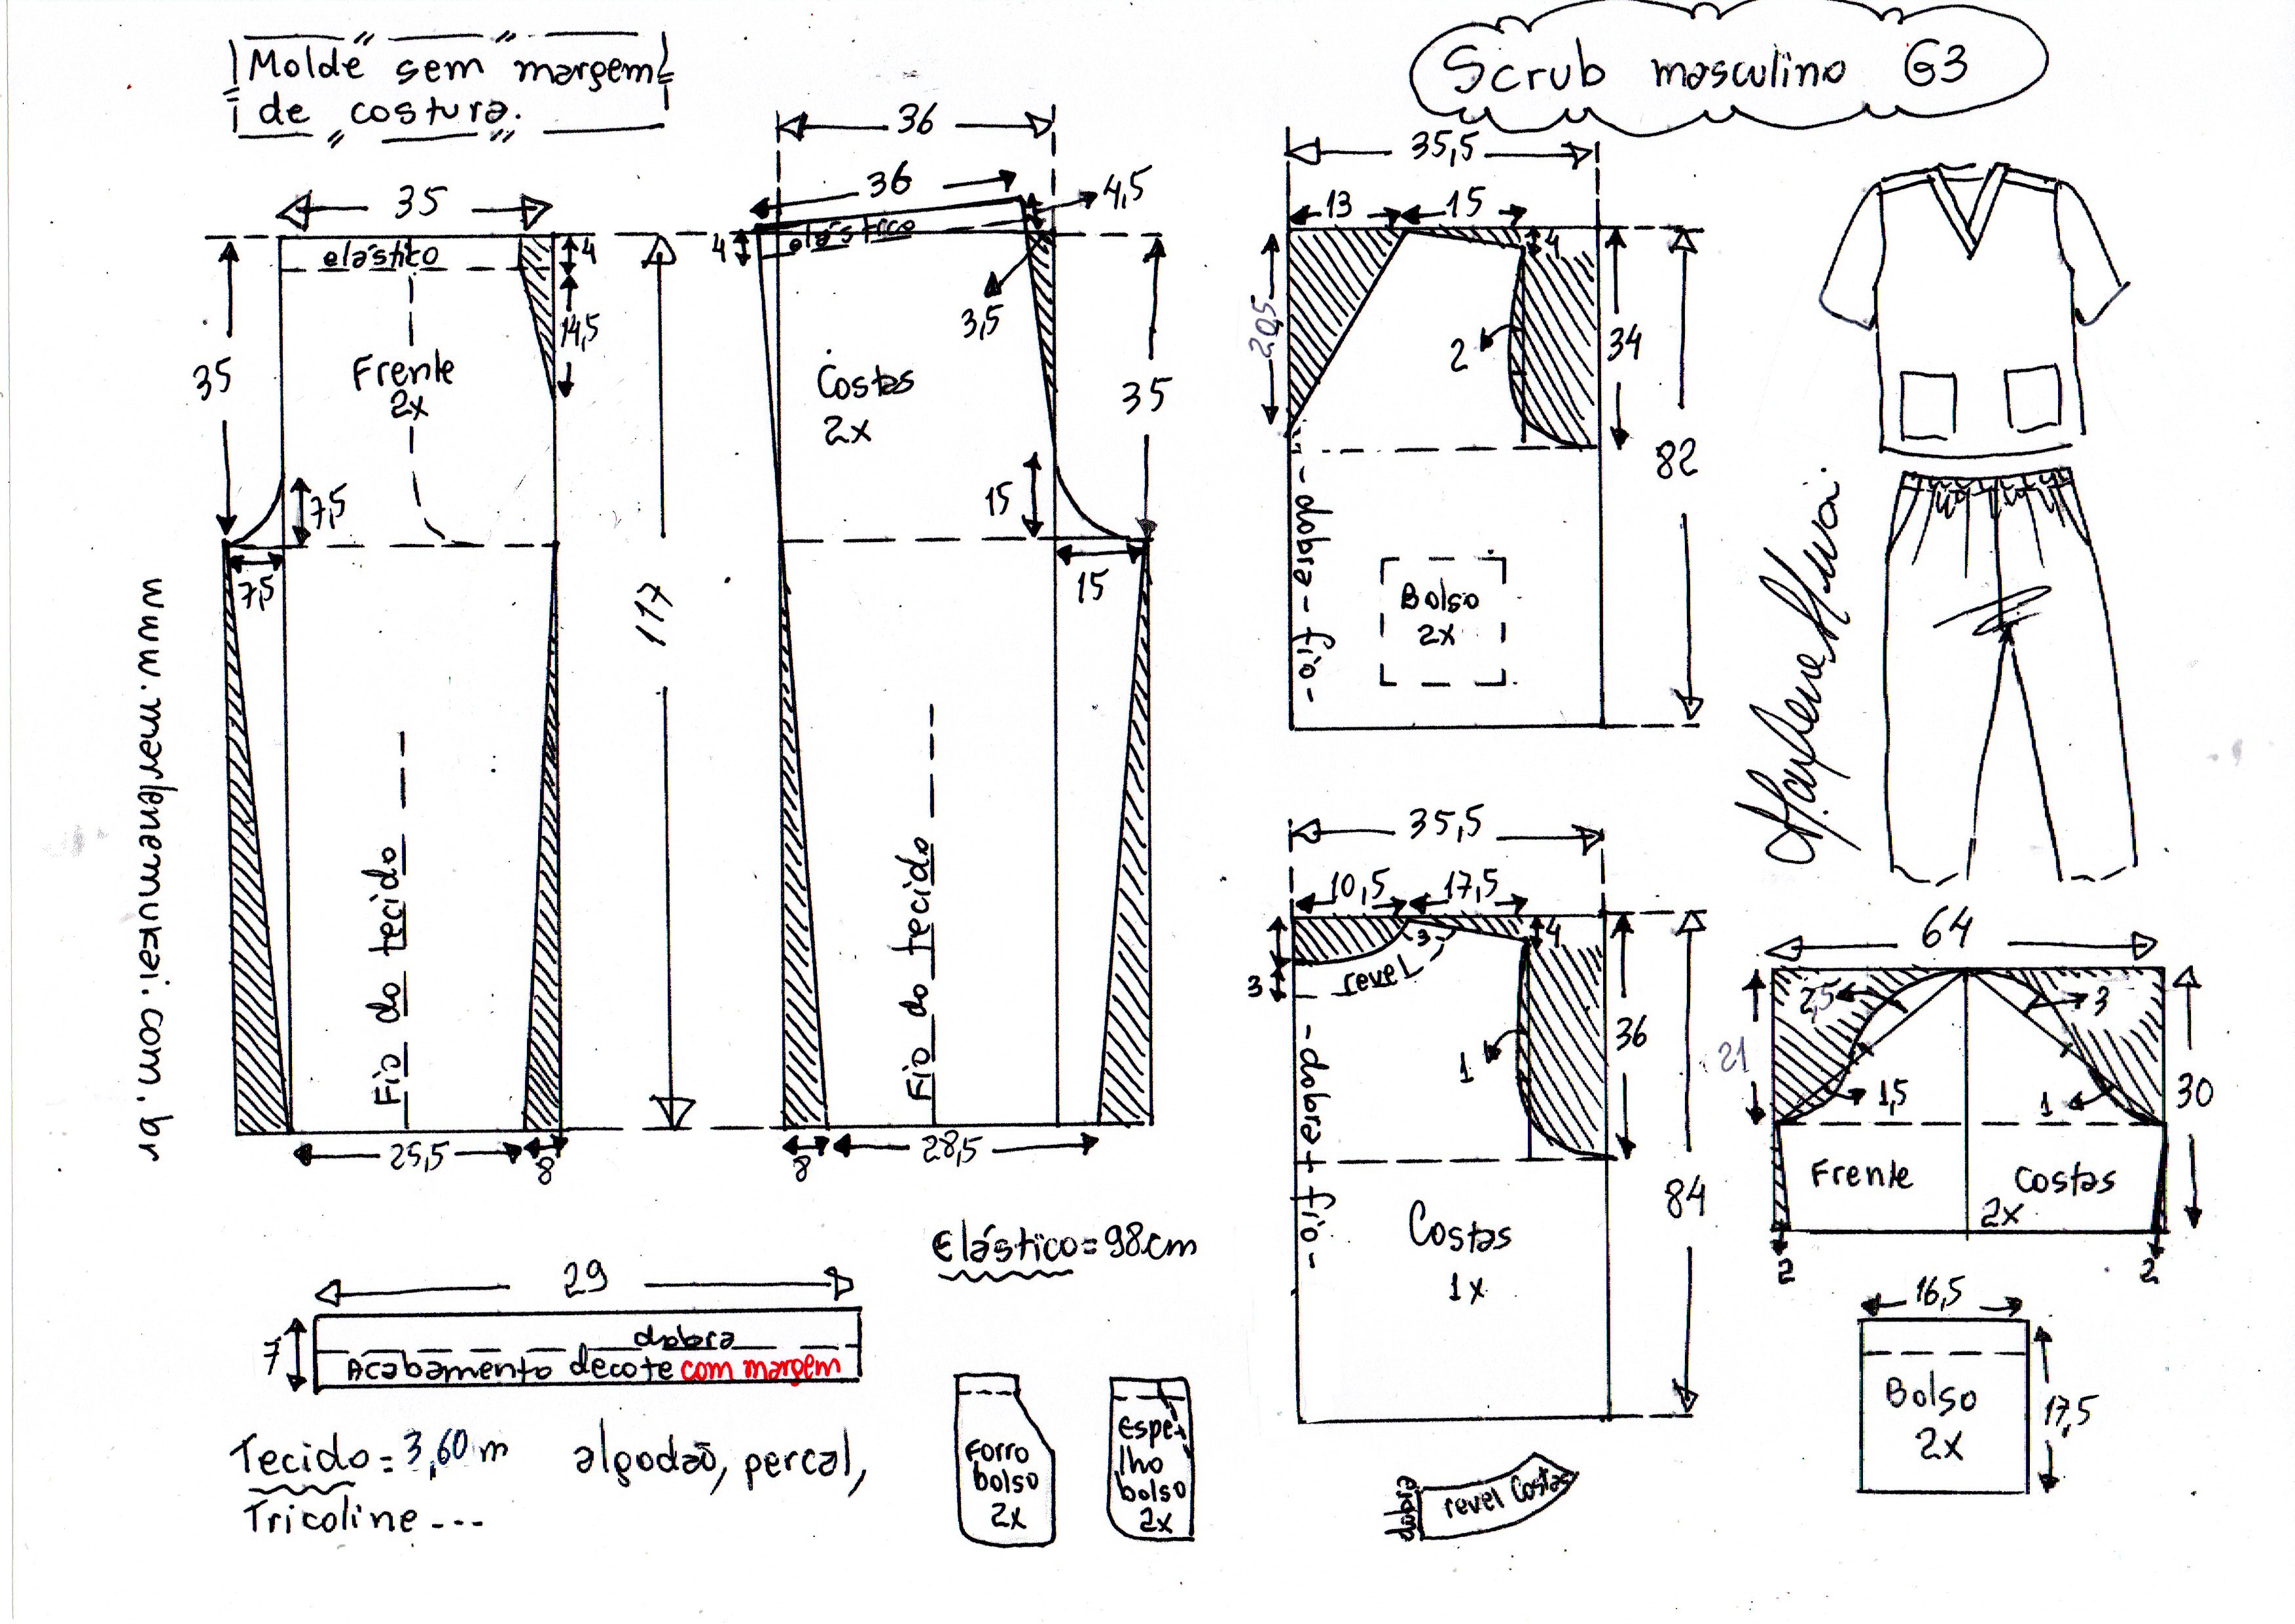 Molde sem margem
de costura.
Scrub masculino G3
36
35,5
35
36
4,5
13
15
elástico
4
4
elástico
4
14,5
3,5
20,5
2
34
35
Frente
2x
Costas
2x
35
82
7,5
15
7,5
15
- dobra - fio -
Bolso
2x
117
www.marlenemukai.com.br
Marlene Mukai
Fio do tecido
Fio do tecido
35,5
10,5
17,5
3
4
revel
3
1
36
- dobra + fio -
84
Costas
1x
64
2,5
3
21
1,5
1
30
Frente
Costas
2x
2
2
25,5
8
8
28,5
Elástico = 98cm
29
7
dobra
Acabamento decote com margem
Tecido = 3,60 m algodão, percal,
Tricoline ---
Forro
bolso
2x
Espe-
lho
bolso
2x
dobra
revel Costas
16,5
Bolso
2x
17,5